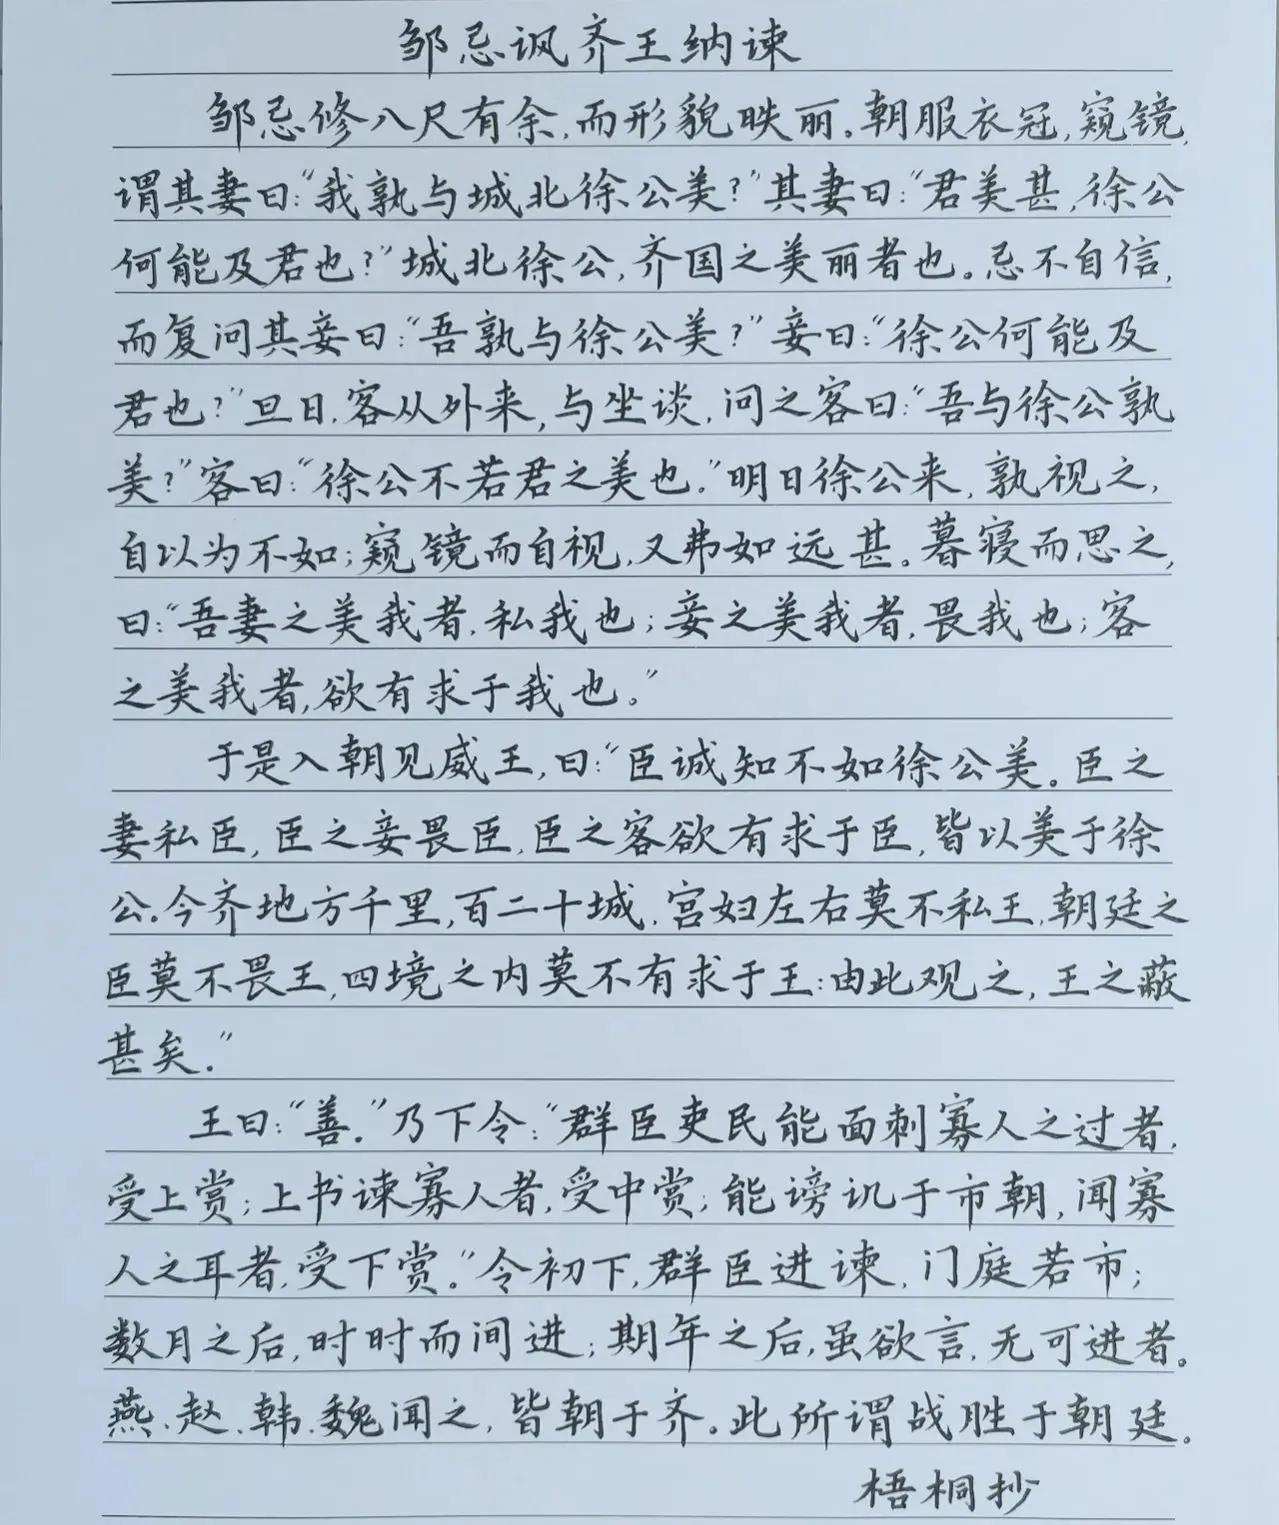 邹忌讽齐王纳谏
邹忌修八尺有余,而形貌昳丽。朝服衣冠,窥镜,
谓其妻曰:“我孰与城北徐公美?”其妻曰:“君美甚,徐公
何能及君也?”城北徐公,齐国之美丽者也。忌不自信,
而复问其妾曰:“吾孰与徐公美?”妾曰:“徐公何能及
君也?”旦日,客从外来,与坐谈,问之客曰:“吾与徐公孰
美?”客曰:“徐公不若君之美也。”明日徐公来,孰视之,
自以为不如;窥镜而自视,又弗如远甚。暮寝而思之,
曰:“吾妻之美我者,私我也;妾之美我者,畏我也;客
之美我者,欲有求于我也。”
于是入朝见威王,曰:“臣诚知不如徐公美。臣之
妻私臣,臣之妾畏臣,臣之客欲有求于臣,皆以美于徐
公。今齐地方千里,百二十城,宫妇左右莫不私王,朝廷之
臣莫不畏王,四境之内莫不有求于王:由此观之,王之蔽
甚矣。”
王曰:“善。”乃下令:“群臣吏民能面刺寡人之过者,
受上赏;上书谏寡人者,受中赏;能谤讥于市朝,闻寡
人之耳者,受下赏。”令初下,群臣进谏,门庭若市;
数月之后,时时而间进;期年之后,虽欲言,无可进者。
燕、赵、韩、魏闻之,皆朝于齐。此所谓战胜于朝廷。
梧桐抄